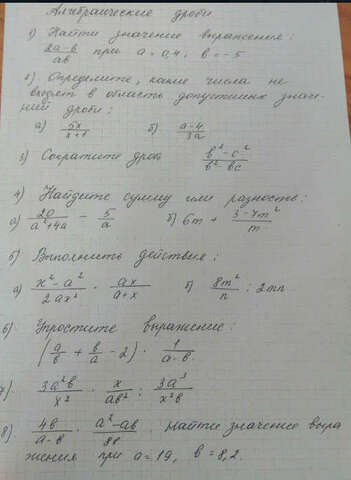 Алгебраические дроби
1) Найти значение выражения:
(2a-b)/(ab) при a = 0,4; b = -5
2) Определите, какие числа не
входят в область допустимых значе-
ний дроби:
а) 5x/(x+8) б) (a-4)/(3a)
3) Сократите дробь (b²-c²)/(b² bc)
4) Найдите сумму или разность:
а) 20/(a²+4a) - 5/a б) 6m + (3-7m²)/m
5) Выполнить действия:
а) (x²-a²)/(2ax²) · ax/(a+x) б) 8m²/n : 2mn
6) Упростите выражение:
(a/b + b/a - 2) · 1/(a-b)
7) 3a²b/x² · x/(ab²) : 3a³/(x²b)
8) 4b/(a-b) · (a²-ab)/(8b) Найти значение выра
жения при a = 19, b = 8,2.